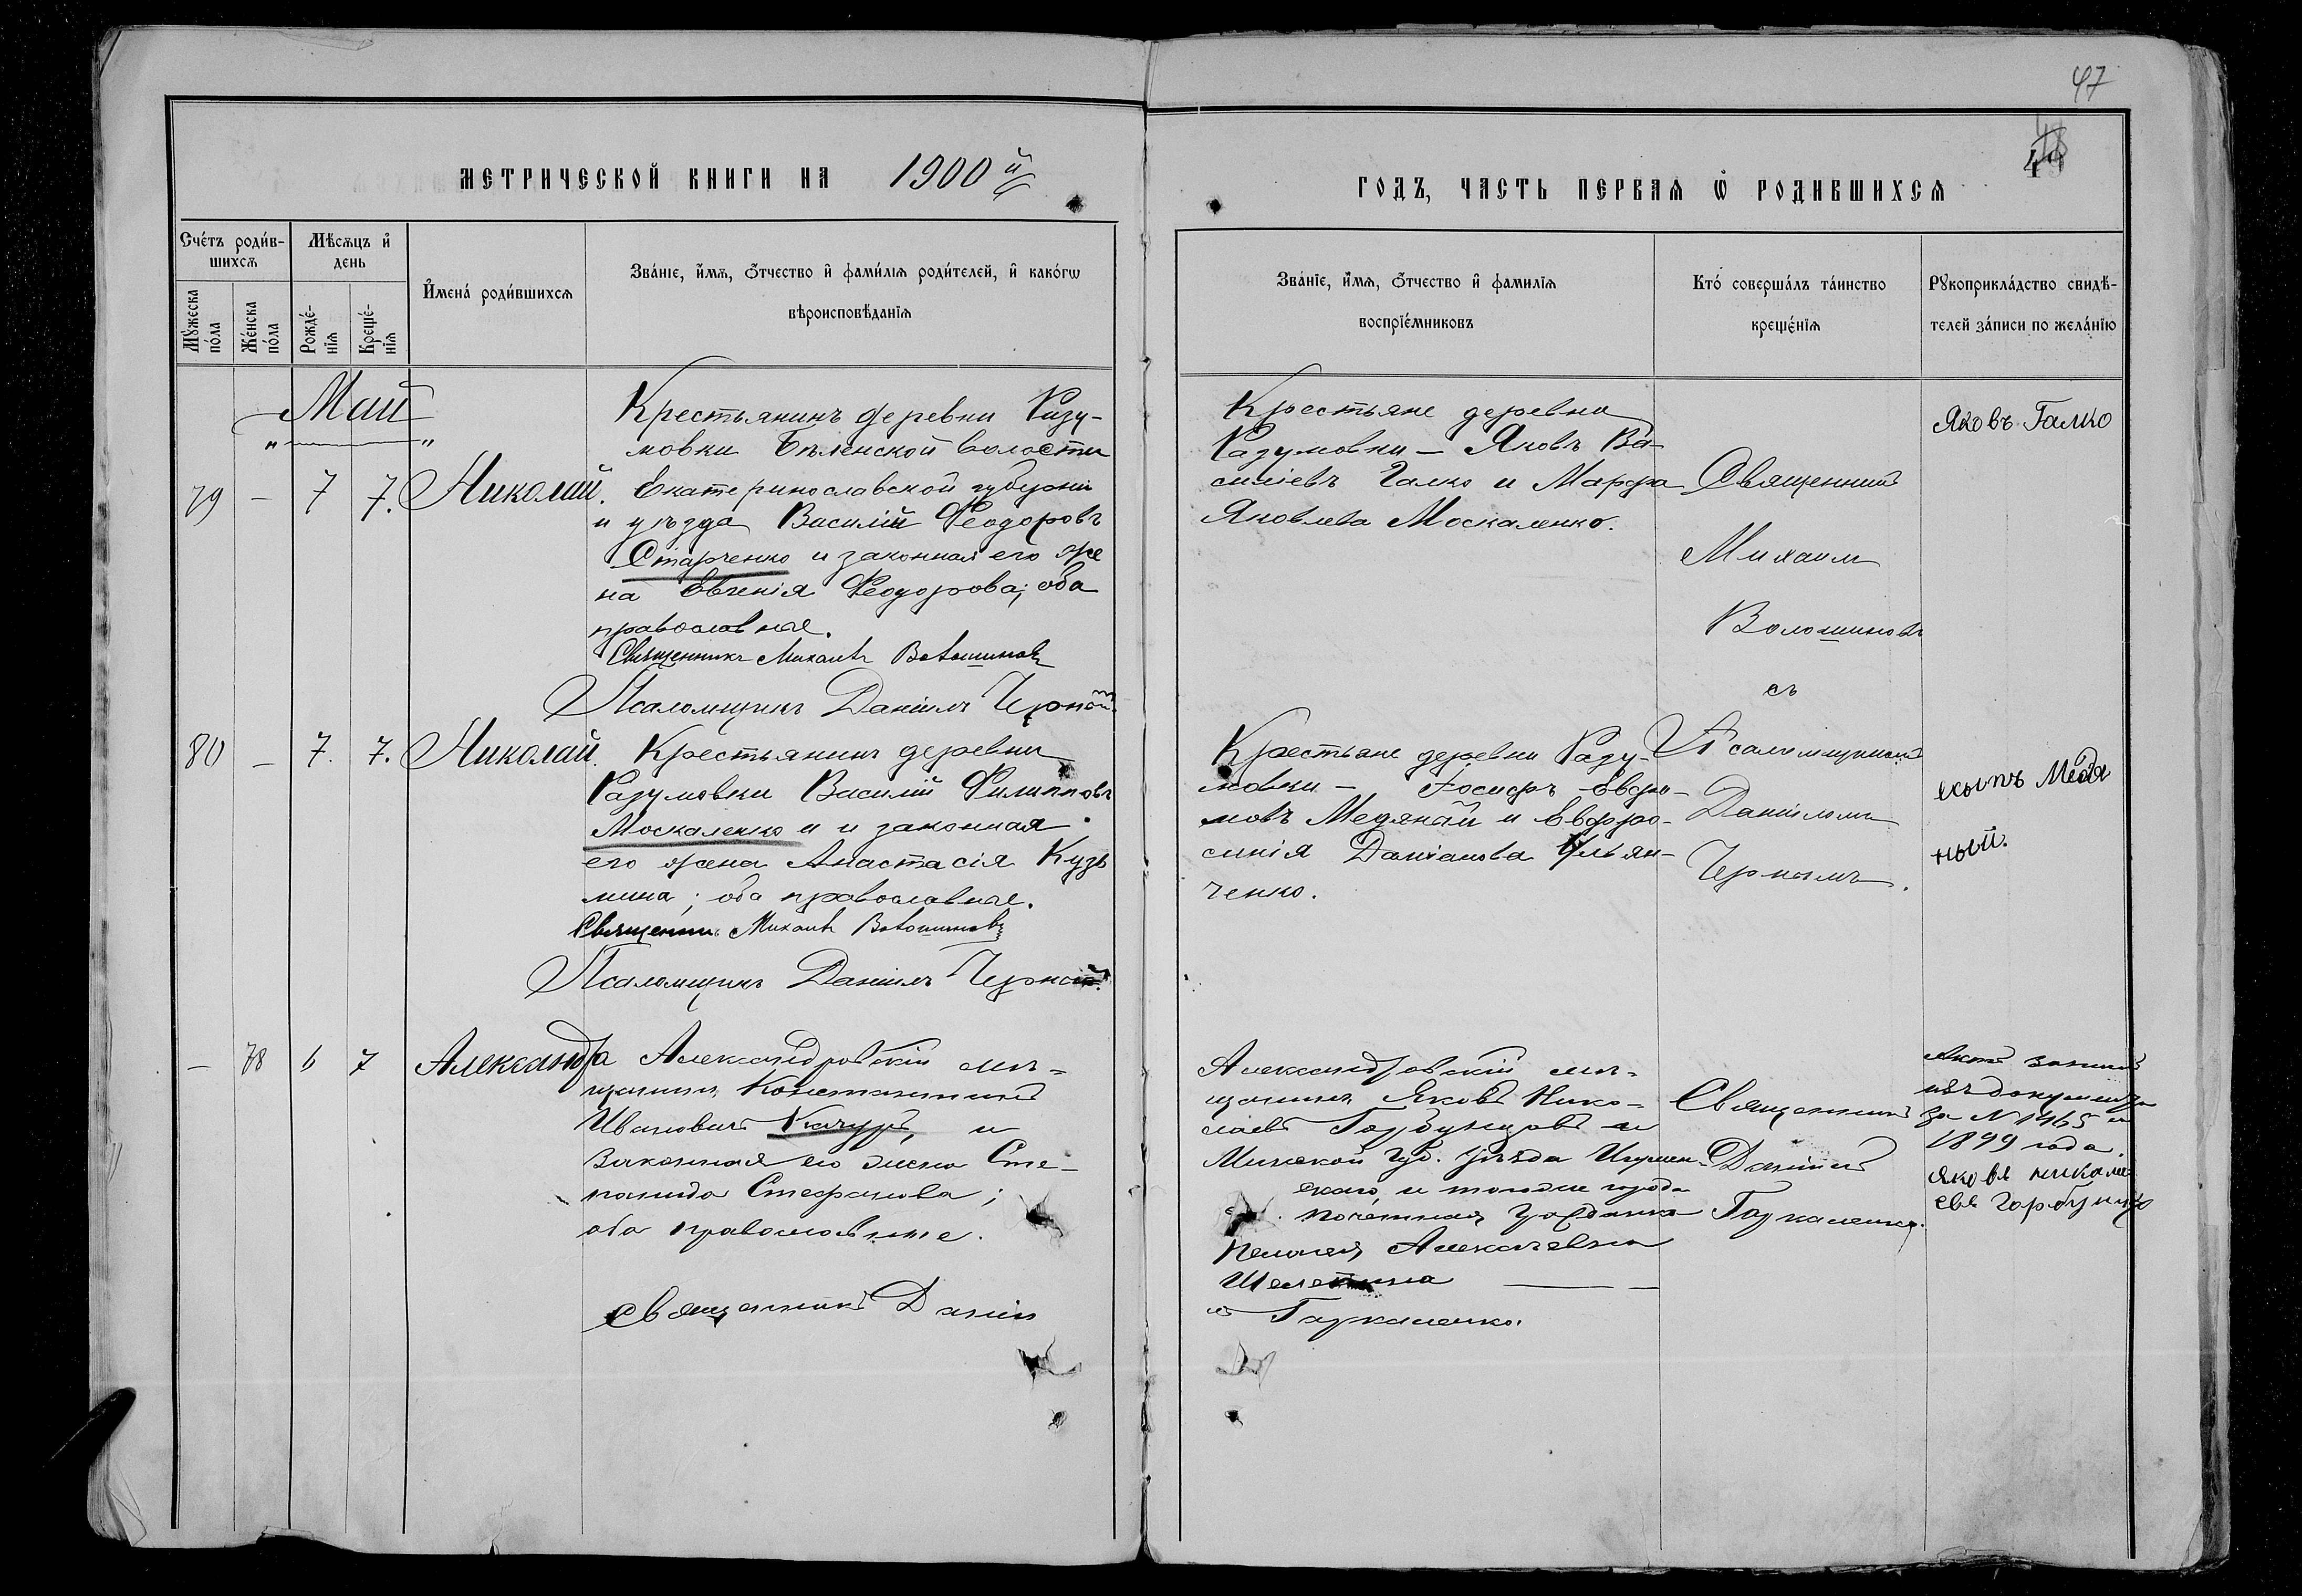 47
МЕТРИЧЕСКОЙ КНИГИ НА 1900 й
ГОДЪ, ЧАСТЬ ПЕРВАЯ Ѡ РОДИВШИХСЯ
Счётъ роди́в-
шихсѧ
Мужеска по́ла
Же́нска по́ла
Мѣсѧцъ и҆ день
Рожде́-
нїѧ
Креще́-
нїѧ
И҆мена̀ роди́вшихсѧ
Зва́нїе, и҆́мѧ, ѻ҆́тчество и҆ фами́лїѧ роди́телей, и҆ како́гѡ
вѣроисповѣ́данїѧ
Зва́нїе, и҆́мѧ, ѻ҆́тчество и҆ фами́лїѧ
воспрїе́мниковъ
Кто̀ соверша́лъ та́инство
креще́нїѧ
Рꙋкоприкла́дство свидѣ́-
телей за́писи по жела́нїю
Май
79 – 7 7. Николай.
Крестьянинъ деревни Разу-
мовки Бѣленской волости
Екатеринославской губерніи
и уѣзда Василій Ѳеодоровъ
Старченко и законная его же
на Евгенія Ѳеодорова; оба
православные.
Священникъ Михаилъ Волошиновъ
Псаломщикъ Даніилъ Черный.
Крестьяне деревни
Разумовки – Яковъ Ва-
силіевъ Галко и Марфа
Яковлева Москаленко.
Священникъ
Михаилъ
Волошиновъ
съ
Псаломщикомъ
Даніиломъ
Чернымъ.
Яковъ Галко
80 – 7. 7. Николай.
Крестьянинъ деревни
Разумовки Василій Филипповъ
Москаленко и и законная
его жена Анастасія Кузь
мина; оба православные.
Священникъ Михаилъ Волошиновъ
Псаломщикъ Даніилъ Черный.
Крестьяне деревни Разу-
мовки – Іосифъ Евфи-
мовъ Медяной и Евфро-
синія Даніилова Ульян-
ченко.
Медя
ный.
– 78 6 7 Александра
Александровскій мѣ-
щанинъ Константинъ
Ивановичъ Качуръ, и
законная его жена Сте-
панида Стефанова;
оба православные.
Священникъ Даніи
Александровскій мѣ-
щанинъ Яковъ Нико-
лаевъ Горбунцовъ и
Минской Губ. уѣзда Игумен-
скаго, и того же города
почетная гражданка
Пелагея Алексѣевна
лъ Гаркаленко.
Священникъ
Даніилъ
Гаркаленко.
за N 1465 и
1899 года.
Яковъ Никола
евъ Горбунцо